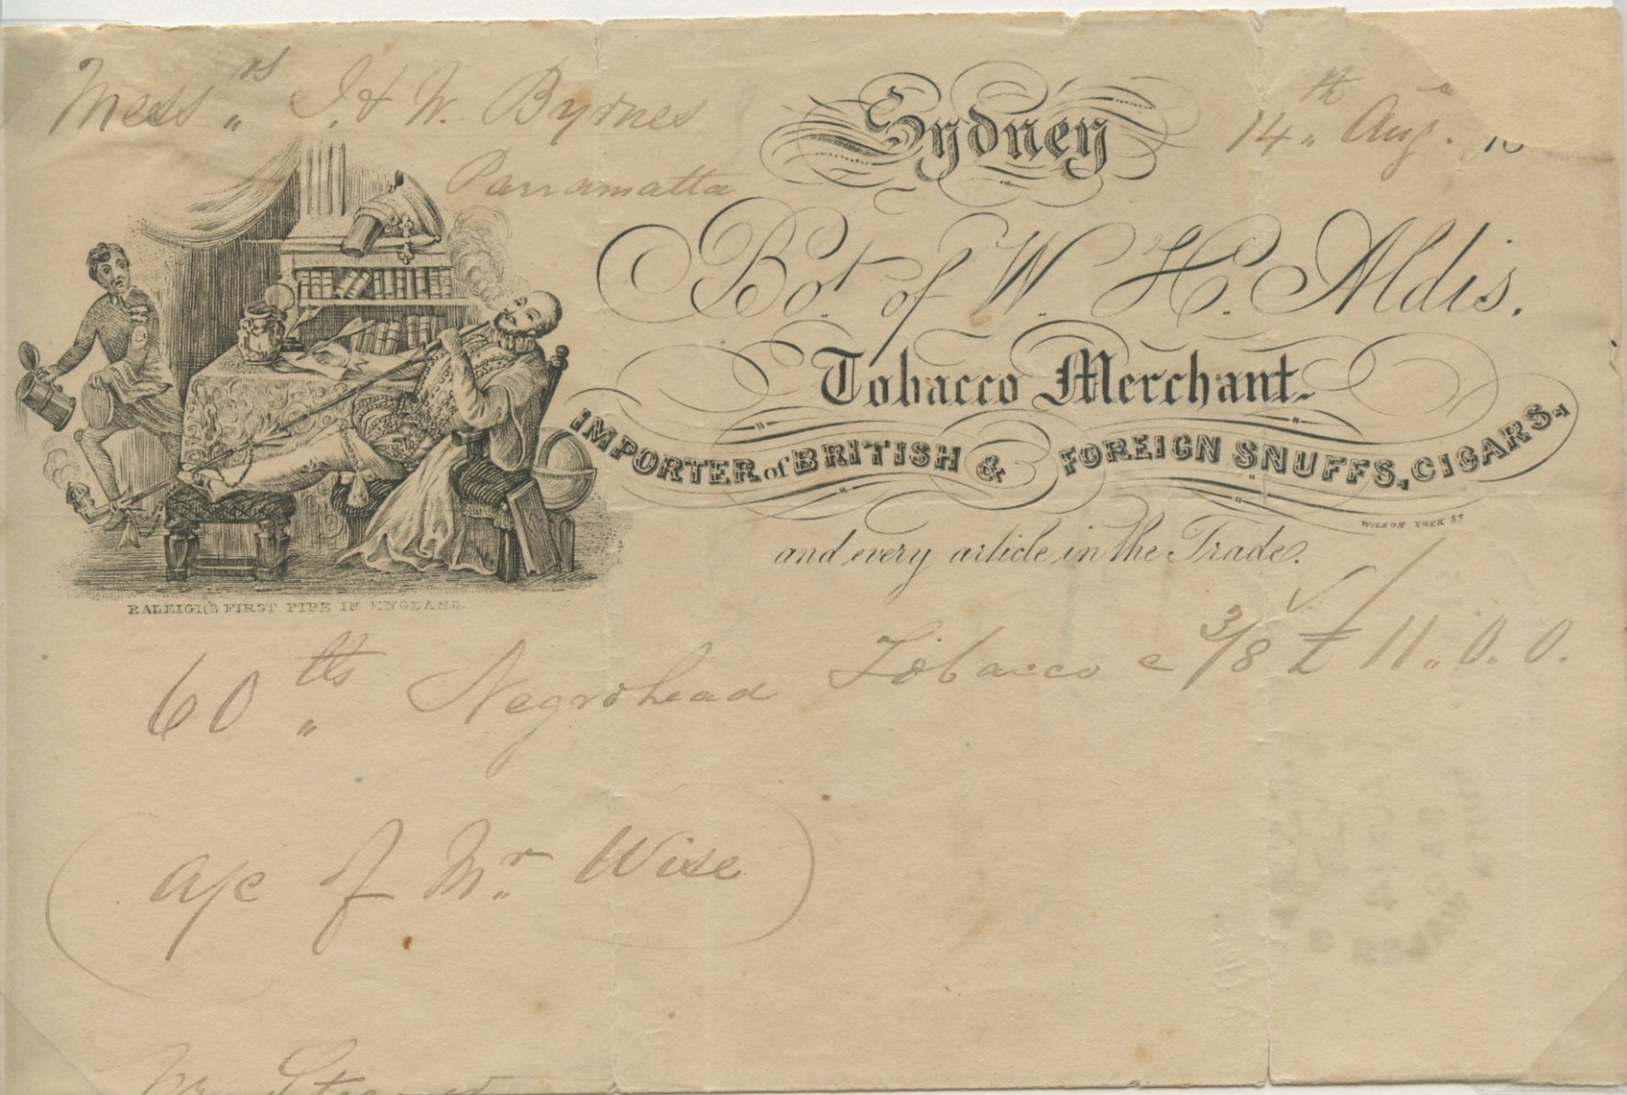 Mess.rs J. & W. Byrnes
Parramatta
Sydney 14.th Aug. 18
Bo.t of W. H. Aldis.
Tobacco Merchant.
IMPORTER of BRITISH & FOREIGN SNUFFS, CIGARS,
WILSON YORK ST
and every article in the Trade.
RALEIGH'S FIRST PIPE IN ENGLAND.
60 lbs Negrohead Tobacco @ 3/8 £ 11. 0. 0.
a/c of Mr. Wise